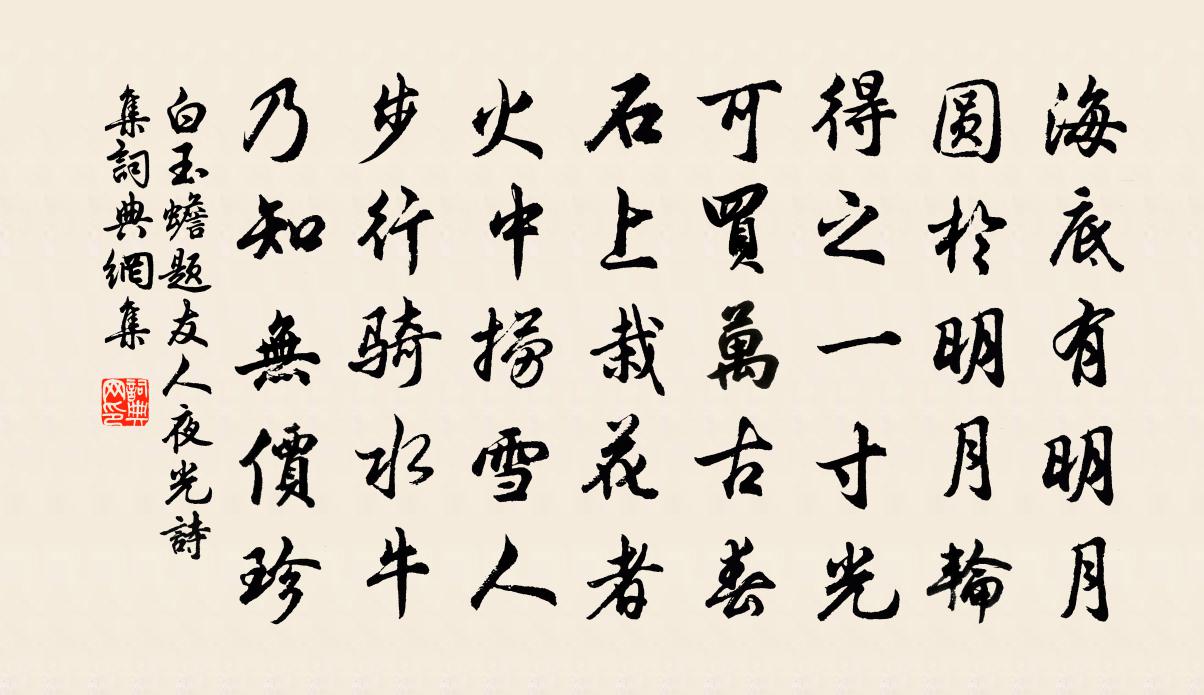 海底有明月
圆於明月輪
得之一寸光
可買萬古春
石上栽花者
火中撈雪人
步行騎水牛
乃知無價珍
白玉蟾题友人夜光詩
集詞典網集
詞典网印